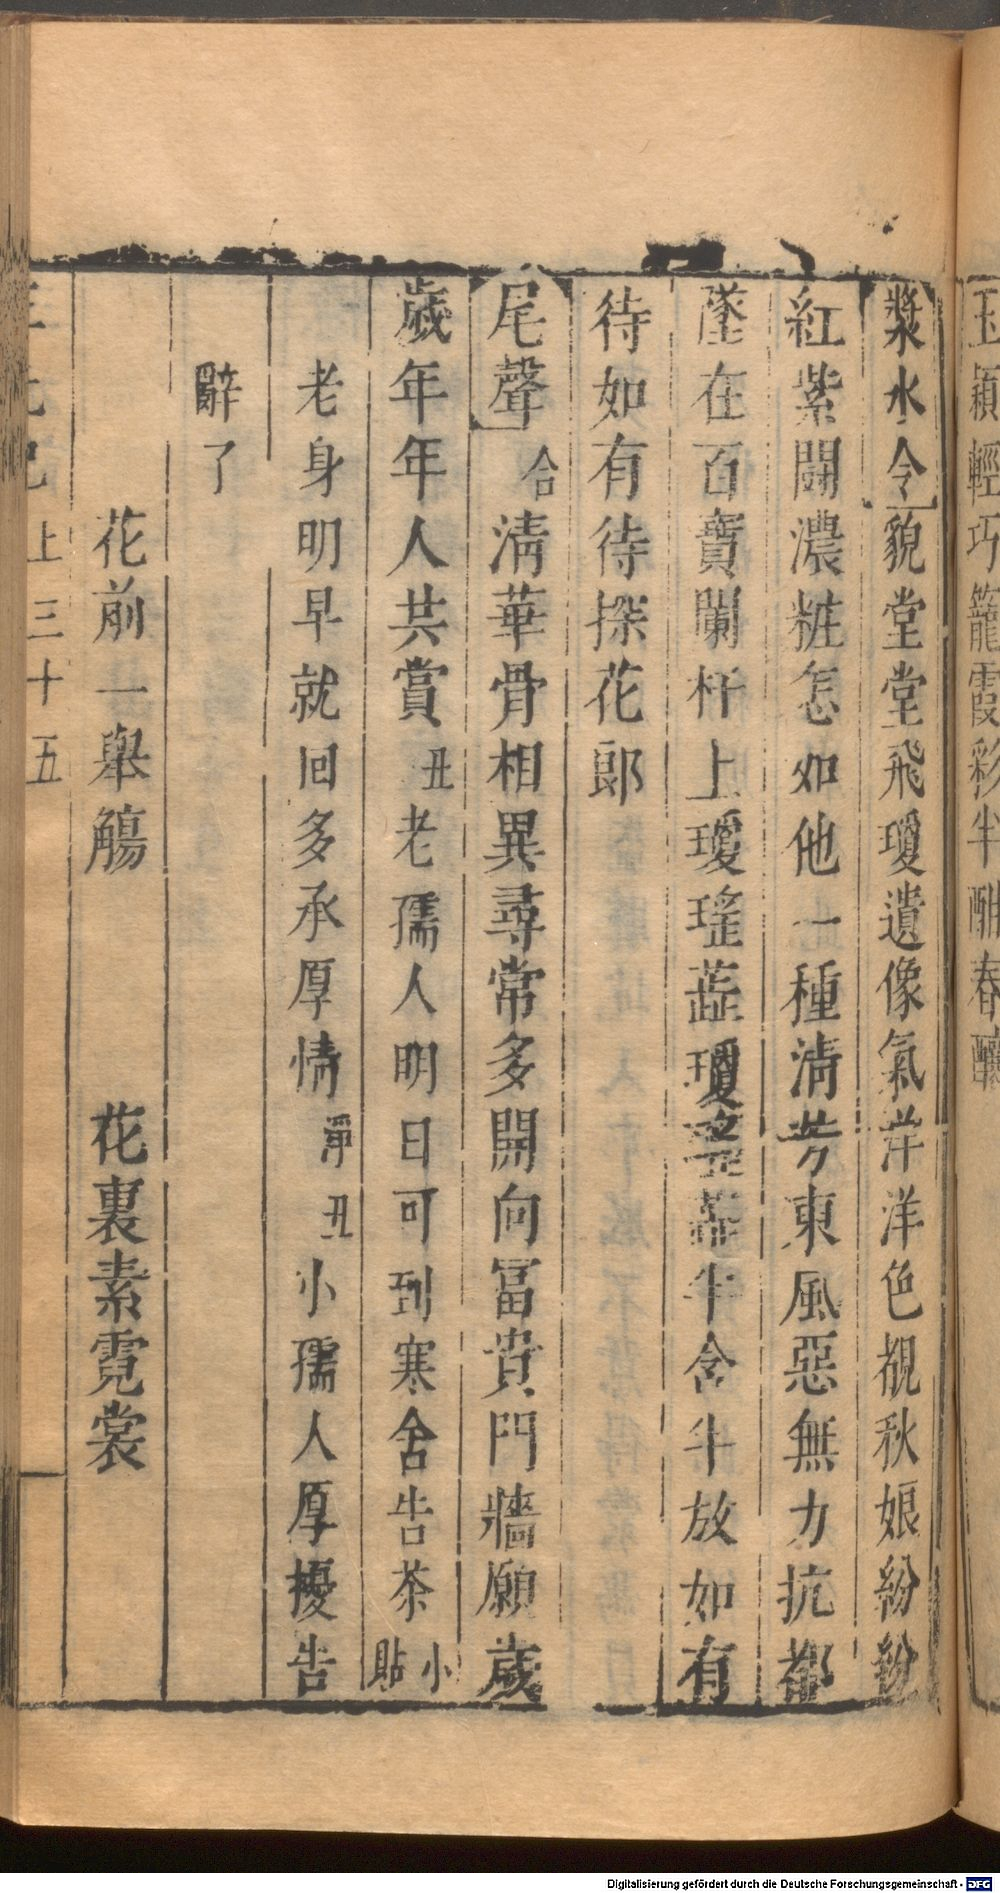 玉穎輕巧籠霞彩半酣春釀
漿水令貌堂堂飛瓊遺像氣洋洋色覩秋娘紛紛
紅紫鬪濃粧怎如他一種清芳東風惡無力抗都
墜在百寶闌杆上瓊瑤蕋瓊瑤蕋半含半放如有
待如有待探花郎
尾聲 合清華骨相異尋常多開向冨貴門牆願歲
歲年年人共賞 丑老孺人明日可到寒舍告茶 小貼
老身明早就回多承厚情 淨丑小孺人厚擾告
辭了
花前一舉觴 花裏素霓裳
三元記 上 三十五
Digitalisierung gefördert durch die Deutsche Forschungsgemeinschaft - DFG